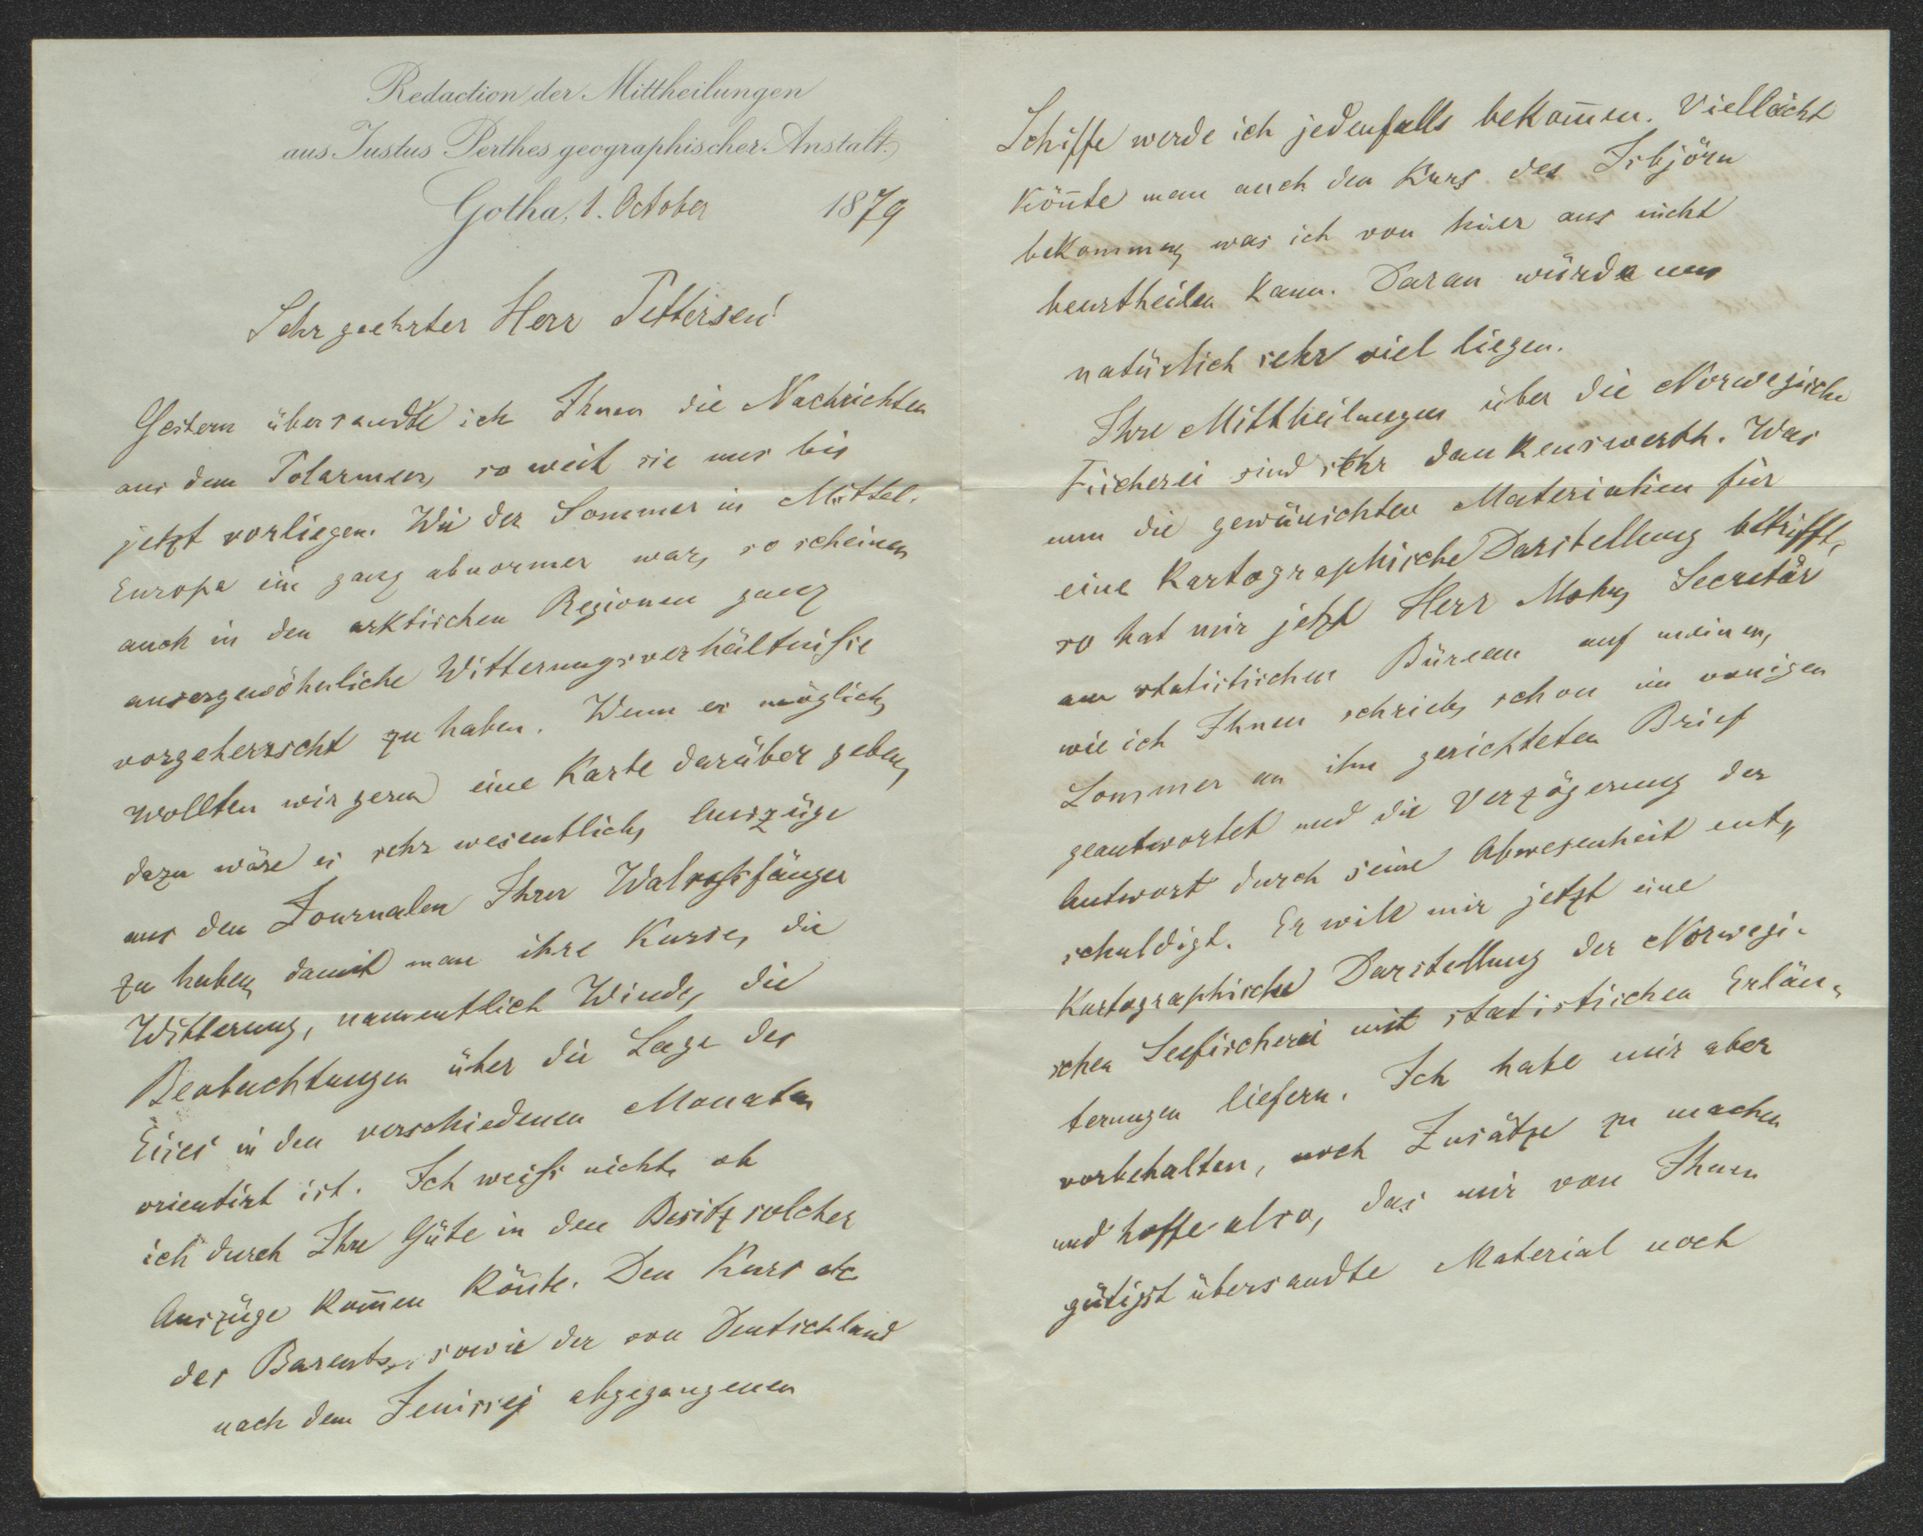 Redaction der Mittheilungen
aus Justus Perthes geographischer Anstalt.
Gotha, 1. October 1879
Sehr geehrter Herr Pettersen!
Gestern übersandte ich Ihnen die Nachrichten
aus dem Polarmeer, so weit sie uns bis
jetzt vorliegen. Wie der Sommer in Mittel-
Europa ein ganz abnormer war, so scheinen
auch in den arktischen Regionen ganz
aussergewöhnliche Witterungsverhältniſse
vorgeherrscht zu haben. Wenn es möglich,
wollten wir gern eine Karte darüber geben,
dazu wäre es sehr wesentlich, Auszüge
aus den Journalen Ihrer Walroſsfänger
zu haben, damit man ihre Kurse, die
Witterung, namentlich Winde, die
Beobachtungen über die Lage des
Eises in den verschiedenen Monaten
orientirt ist. Ich weiſs nicht, ob
ich durch Ihre Güte in den Besitz solcher
Auszüge kom̄en kön̄te. Den Kurs etc
des Barents, sowie der von Deutschland
nach dem Jenissej abgegangenen
Schiffe werde ich jedenfalls bekom̄en. Vielleicht
kön̄te man auch den Kurs des Isbjörn
bekommen, was ich von hier aus nicht
beurtheilen kann. Daran würde uns
natürlich sehr viel liegen.
Ihre Mittheilungen über die Norwegische
Fischerei sind sehr dankenswerth. Was
nun die gewünschten Materialien für
eine kartographische Darstellung betrifft,
so hat mir jetzt Herr Mohn, Secretär
am statistischen Büreau auf meinen,
wie ich Ihnen schrieb, schon im vorigen
Sommer an ihn gerichteten Brief
geantwortet und die Verzögerung der
Antwort durch seine Abwesenheit ent-
schuldigt. Er will mir jetzt eine
kartographische Darstellung der Norwegi-
schen Seefischerei mit statistischen Erläu-
terungen liefern. Ich habe mir aber
vorbehalten, noch Zusätze zu machen
und hoffe also, das mir von Ihnen
gütigst übersandte Material noch